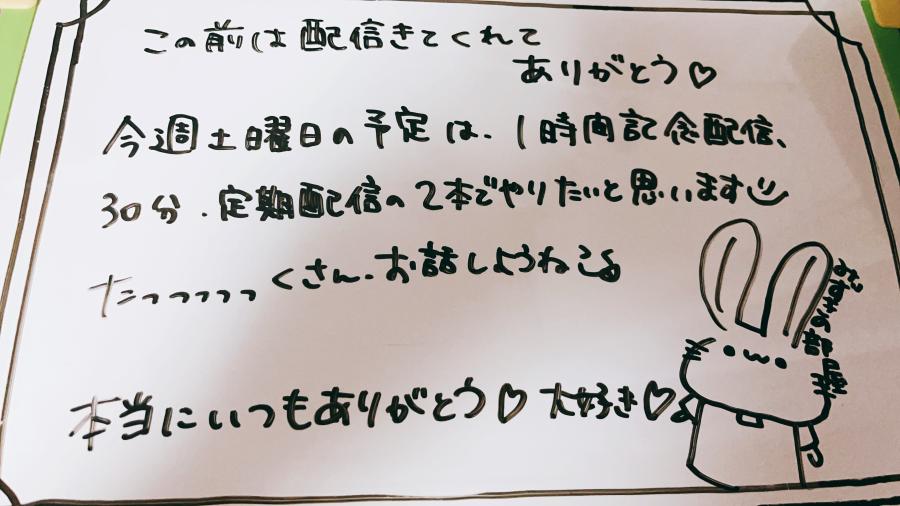 この前は配信きてくれて
ありがとう♡
今週土曜日の予定は、1時間記念配信、
30分、定期配信の2本でやりたいと思います
たっっっっっくさん、お話しようね
本当にいつもありがとう♡ 大好き♡
みずきの部屋